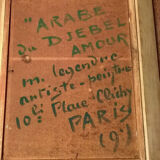 "ARABE
du DJEBEL
AMOUR
m. legendre
artiste-peintre
10 bis Place Clichy
PARIS
(9e)